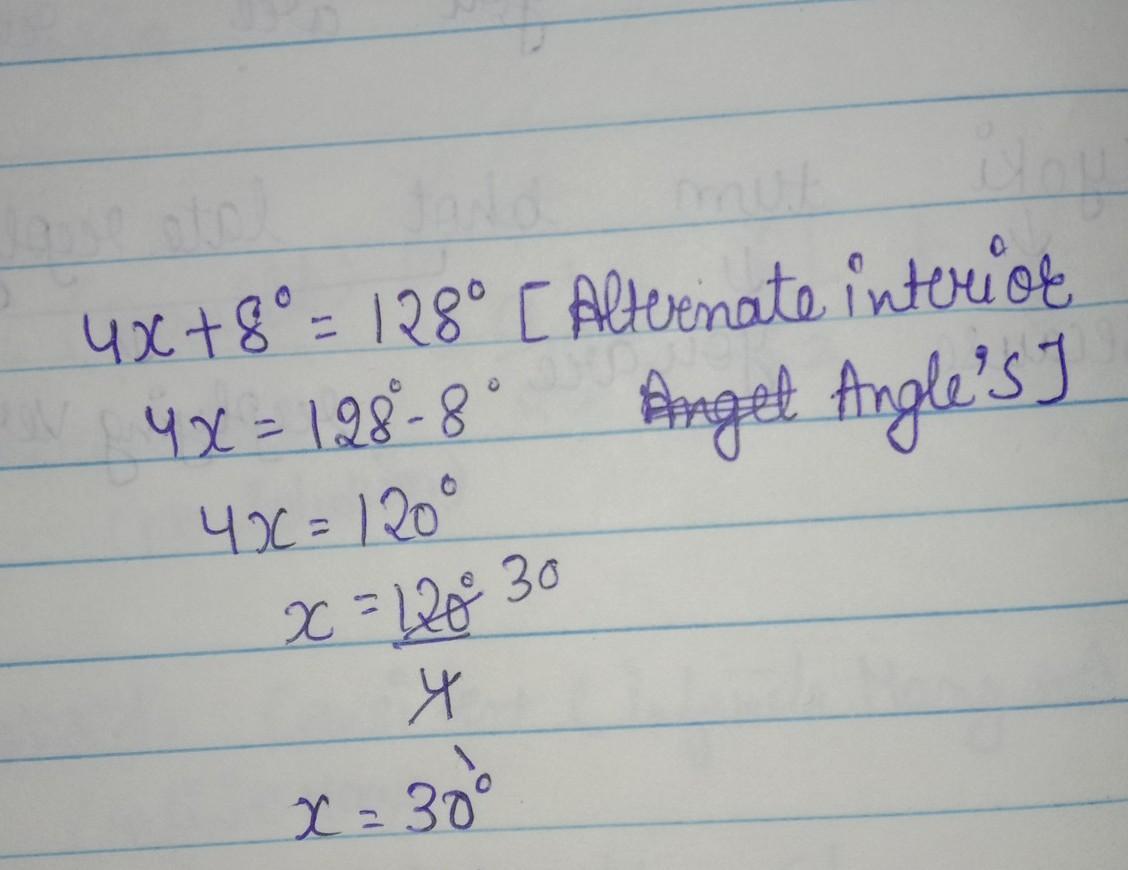 4x+8° = 128° [Alternate interior
4x = 128° - 8° Angle's]
4x = 120°
x = 120° 30
4
x = 30°